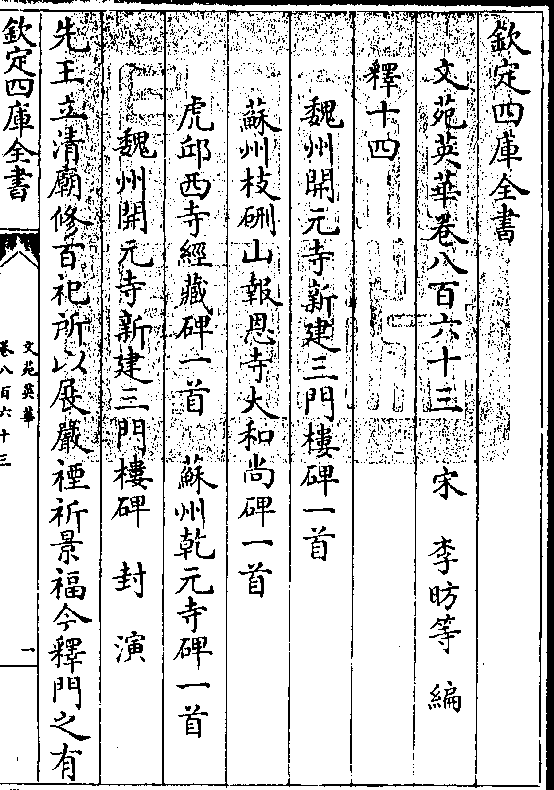 欽定四庫全書
文苑英華卷八百六十三
宋 李昉等 編
釋十四
魏州開元寺新建三門樓碑一首
蘇州枝硎山報恩寺大和尚碑一首
虎邱西寺經藏碑一首 蘇州乾元寺碑一首
魏州開元寺新建三門樓碑 封演
先王立清廟修百祀所以展嚴禋祈景福今釋門之有
欽定四庫全書
文苑英華
卷八百六十三
一